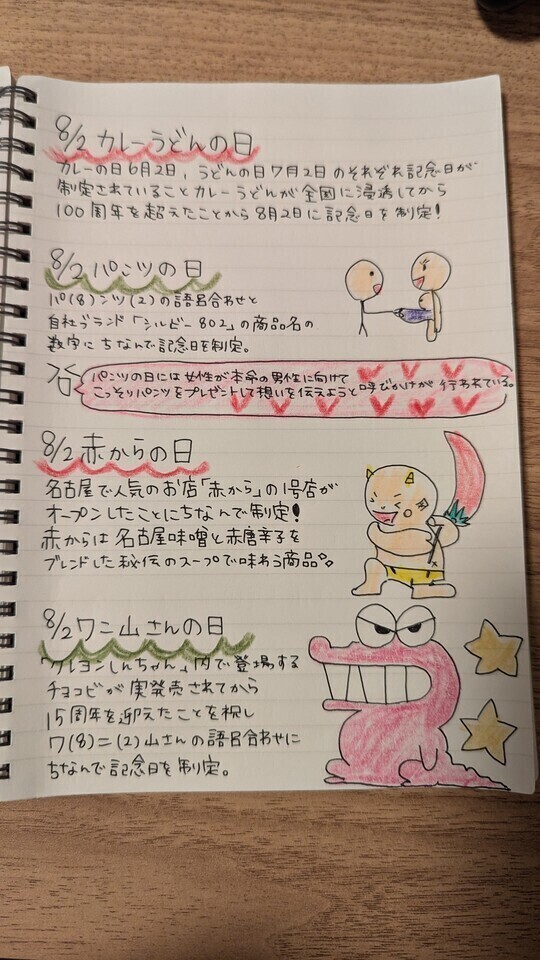 8/2 カレーうどんの日
カレーの日6月2日, うどんの日7月2日 のそれぞれ記念日が
制定されていることカレーうどんが全国に浸透してから
100周年を超えたことから8月2日に記念日を制定!
8/2 パンツの日
パ(8)ンツ(2)の語呂合わせと
自社ブランド「シルビー802」の商品名の
数字にちなんで記念日を制定。
パンツの日には女性が本命の男性に向けて
こっそりパンツをプレゼントして想いを伝えようと呼びかけが行われている。
8/2 赤からの日
名古屋で人気のお店「赤から」の1号店が
オープンしたことにちなんで制定!
赤からは名古屋味噌と赤唐辛子を
ブレンドした秘伝のスープで味わう商品
8/2 ワニ山さんの日
「クレヨンしんちゃん」内で登場する
チョコビが実発売されてから
15周年を迎えたことを祝し
ワ(8)ニ(2)山さんの語呂合わせに
ちなんで記念日を制定。